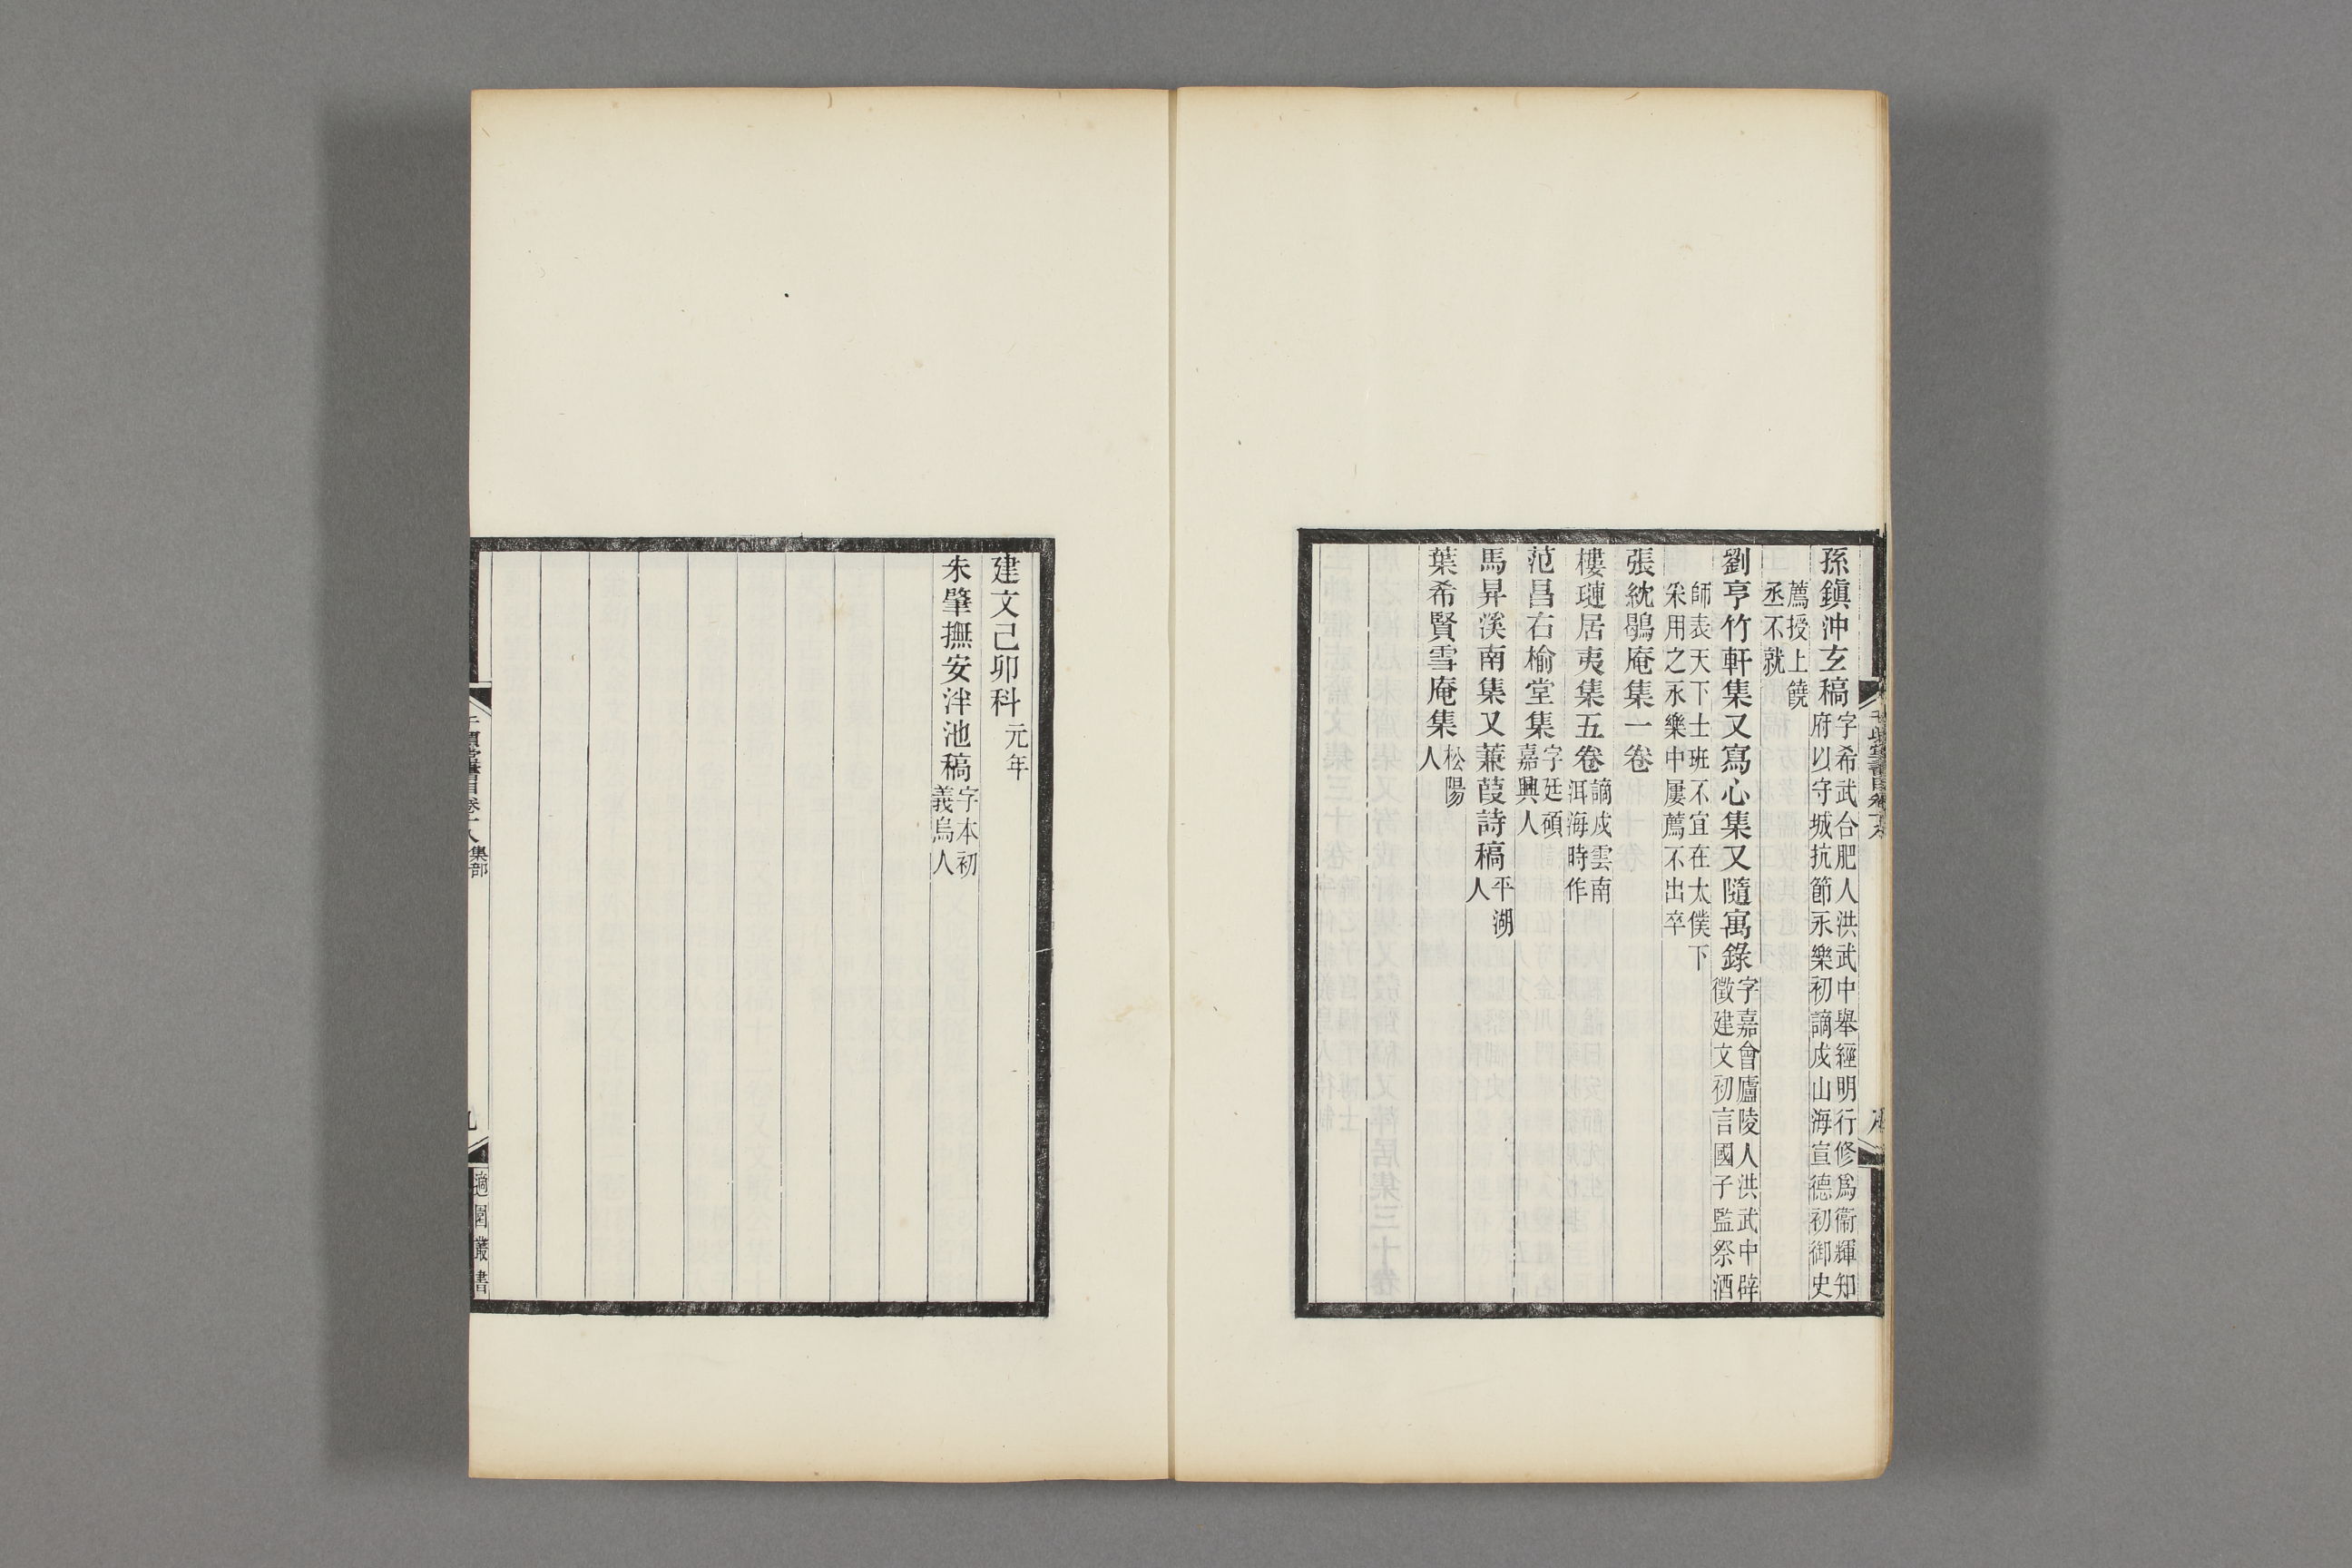 孫鎮沖玄稿字希武合肥人洪武中舉經明行修爲衞輝知
府以守城抗節永樂初謫戍山海宣德初御史
薦授上饒
丞不就
劉亨竹軒集又寫心集又隨寓錄字嘉會廬陵人洪武中辟
徵建文初言國子監祭酒
師表天下士班不宜在太僕下
采用之永樂中屢薦不出卒
張紞鶡庵集一卷
樓璉居夷集五卷謫戍雲南
洱海時作
范昌右榆堂集字廷碩
嘉興人
馬昇溪南集又蒹葭詩稿平湖
人
葉希賢雪庵集松陽
人
建文己卯科元年
朱肇撫安泮池稿字本初
義烏人
千頃堂書目卷十八集部
九
適園叢書